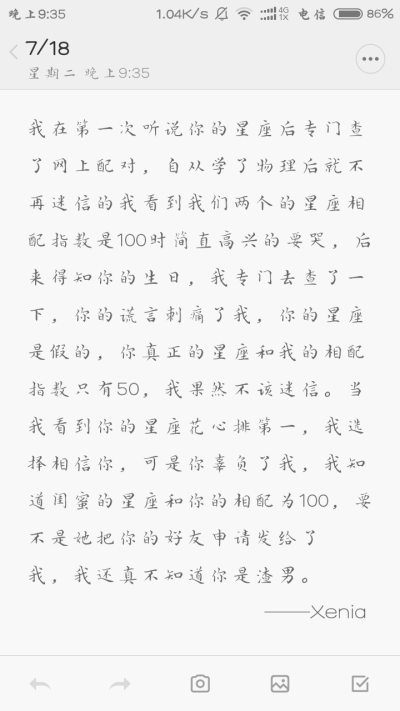 晚上9:35 1.04K/s 4G 1X 电信 86%
7/18
星期二 晚上9:35
我在第一次听说你的星座后专门查
了网上配对，自从学了物理后就不
再迷信的我看到我们两个的星座相
配指数是100时简直高兴的要哭，后
来得知你的生日，我专门去查了一
下，你的谎言刺痛了我，你的星座
是假的，你真正的星座和我的相配
指数只有50，我果然不该迷信。当
我看到你的星座花心排第一，我选
择相信你，可是你辜负了我，我知
道闺蜜的星座和你的相配为100，要
不是她把你的好友申请发给了
我，我还真不知道你是渣男。
——Xenia